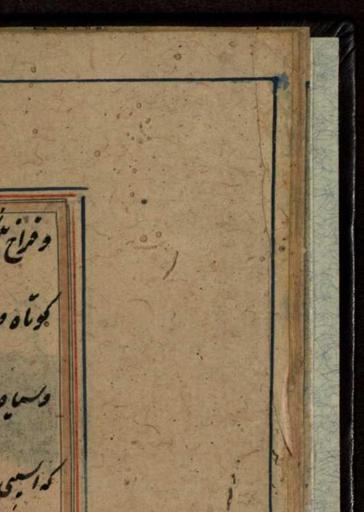 و فراخ
کوتاه و
و سیاه
که اسپی